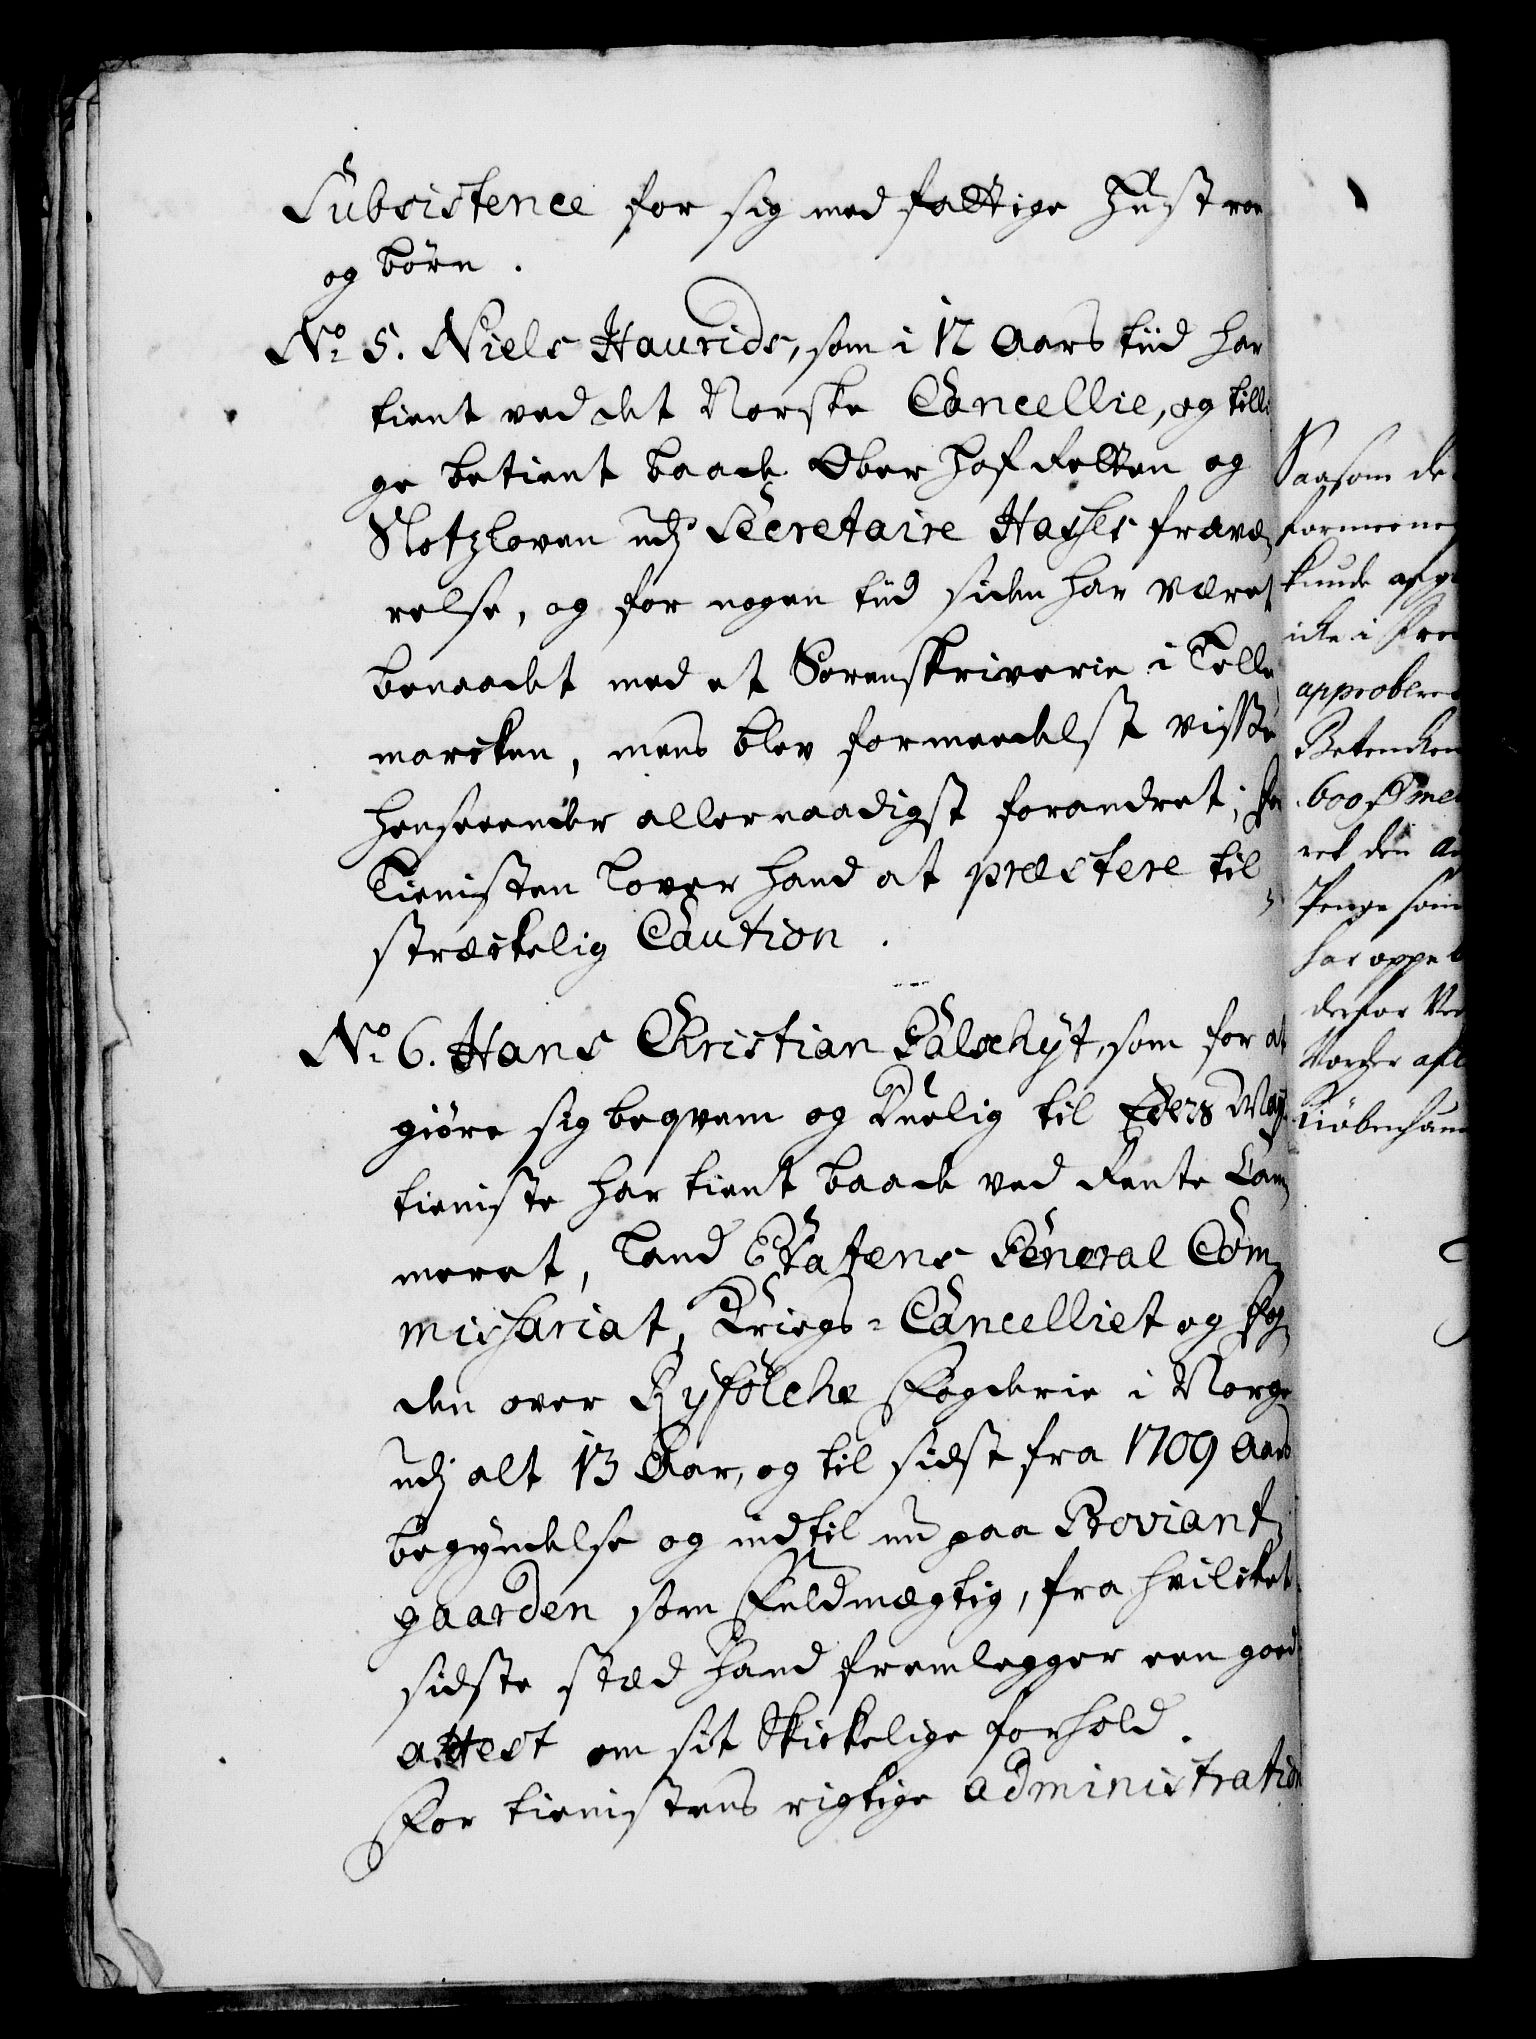 Subsistence for sig med fattige Hustroe
og börn.
No 5. Niels Haurids, som i 12 Aars tiid har
tient ved det Norske Cancellie, og tilli
ge betient baade Ober Hof Retten og
Slotzloven udj Secretaire Hasses fravæ,
relse, og for nogen tiid siden har været
benaadet med et Sorenskriverie i Telle,
marcken, mens blev formedelst visse
henseender allernaadigst forandret; for
Tienisten lover hand at præstere til,
streckelig Caution.
No 6. Hans Christian Palschyt, som for at
giöre sig beqvem og Duelig til Eders May:
tieniste har tient baade ved Rente Cam,
meret, Land Etatens General Com,
missariat, Kriegs=Cancelliet og Fog,
den over Ryfölche Fogderie i Norge
udj alt 13 Aar, og til sidst fra 1709 Aars
begyndelse og indtil nu paa Proviant,
gaarden som Fuldmægtig, fra hvilcket
sidste stæd hand fremlegger een goed
attest om sit Skickelige forhold.
For tienistens rigtige administration
Saasom de
formeene
kunde afg
icke i
approbere
Betencken
600
ret den
Penge som
har oppe
derfor
Vorder
Kiöbenhaun